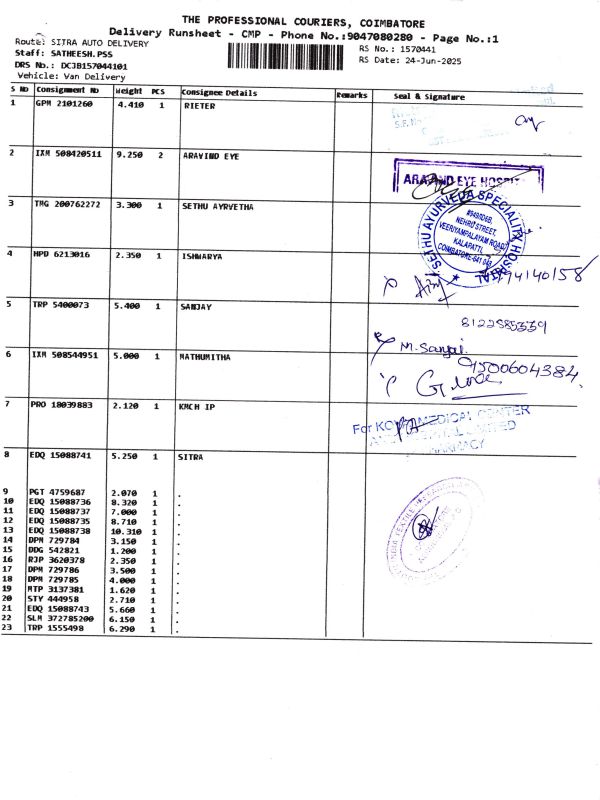 THE PROFESSIONAL COURIERS, COIMBATORE
Delivery Runsheet - CMP - Phone No.:9047080280 - Page No.:1
Route: SITRA AUTO DELIVERY
Staff: SATHEESH.PSS
DRS No.: DCJB157044101
Vehicle: Van Delivery
RS No.: 1570441
RS Date: 24-Jun-2025
S No Consignment No Weight PCS Consignee Details Remarks Seal & Signature
1 GPM 2101260 4.410 1 RIETER
2 IXM 508420511 9.250 2 ARAVIND EYE
ARAVIND EYE HOSPITAL
3 TMG 200762272 3.300 1 SETHU AYRVETHA
SETHU AYURVEDA SPECIALITY HOSPITAL
NEHRU STREET,
VEERIYAMPALAYAM ROAD
KALAPATTI,
COIMBATORE-641 048
4 HPD 6213016 2.350 1 ISHWARYA
94140158
5 TRP 5400073 5.400 1 SANJAY
8122585339
M. Sanjai
6 IXM 508544951 5.000 1 MATHUMITHA
9500604384
7 PRO 18039883 2.120 1 KMCH IP
For KOVAI MEDICAL CENTER
AND HOSPITAL LIMITED
PHARMACY
8 EDQ 15088741 5.250 1 SITRA
9 PGT 4759687 2.070 1 .
10 EDQ 15088736 8.320 1 .
11 EDQ 15088737 7.000 1 .
12 EDQ 15088735 8.710 1 .
13 EDQ 15088738 10.310 1 .
14 DPM 729784 3.150 1 .
15 DDG 542821 1.200 1 .
16 RJP 3620378 2.350 1 .
17 DPM 729786 3.500 1 .
18 DPM 729785 4.000 1 .
19 MTP 3137381 1.620 1 .
20 STY 444958 2.710 1 .
21 EDQ 15088743 5.660 1 .
22 SLM 372785200 6.150 1 .
23 TRP 1555498 6.290 1 .